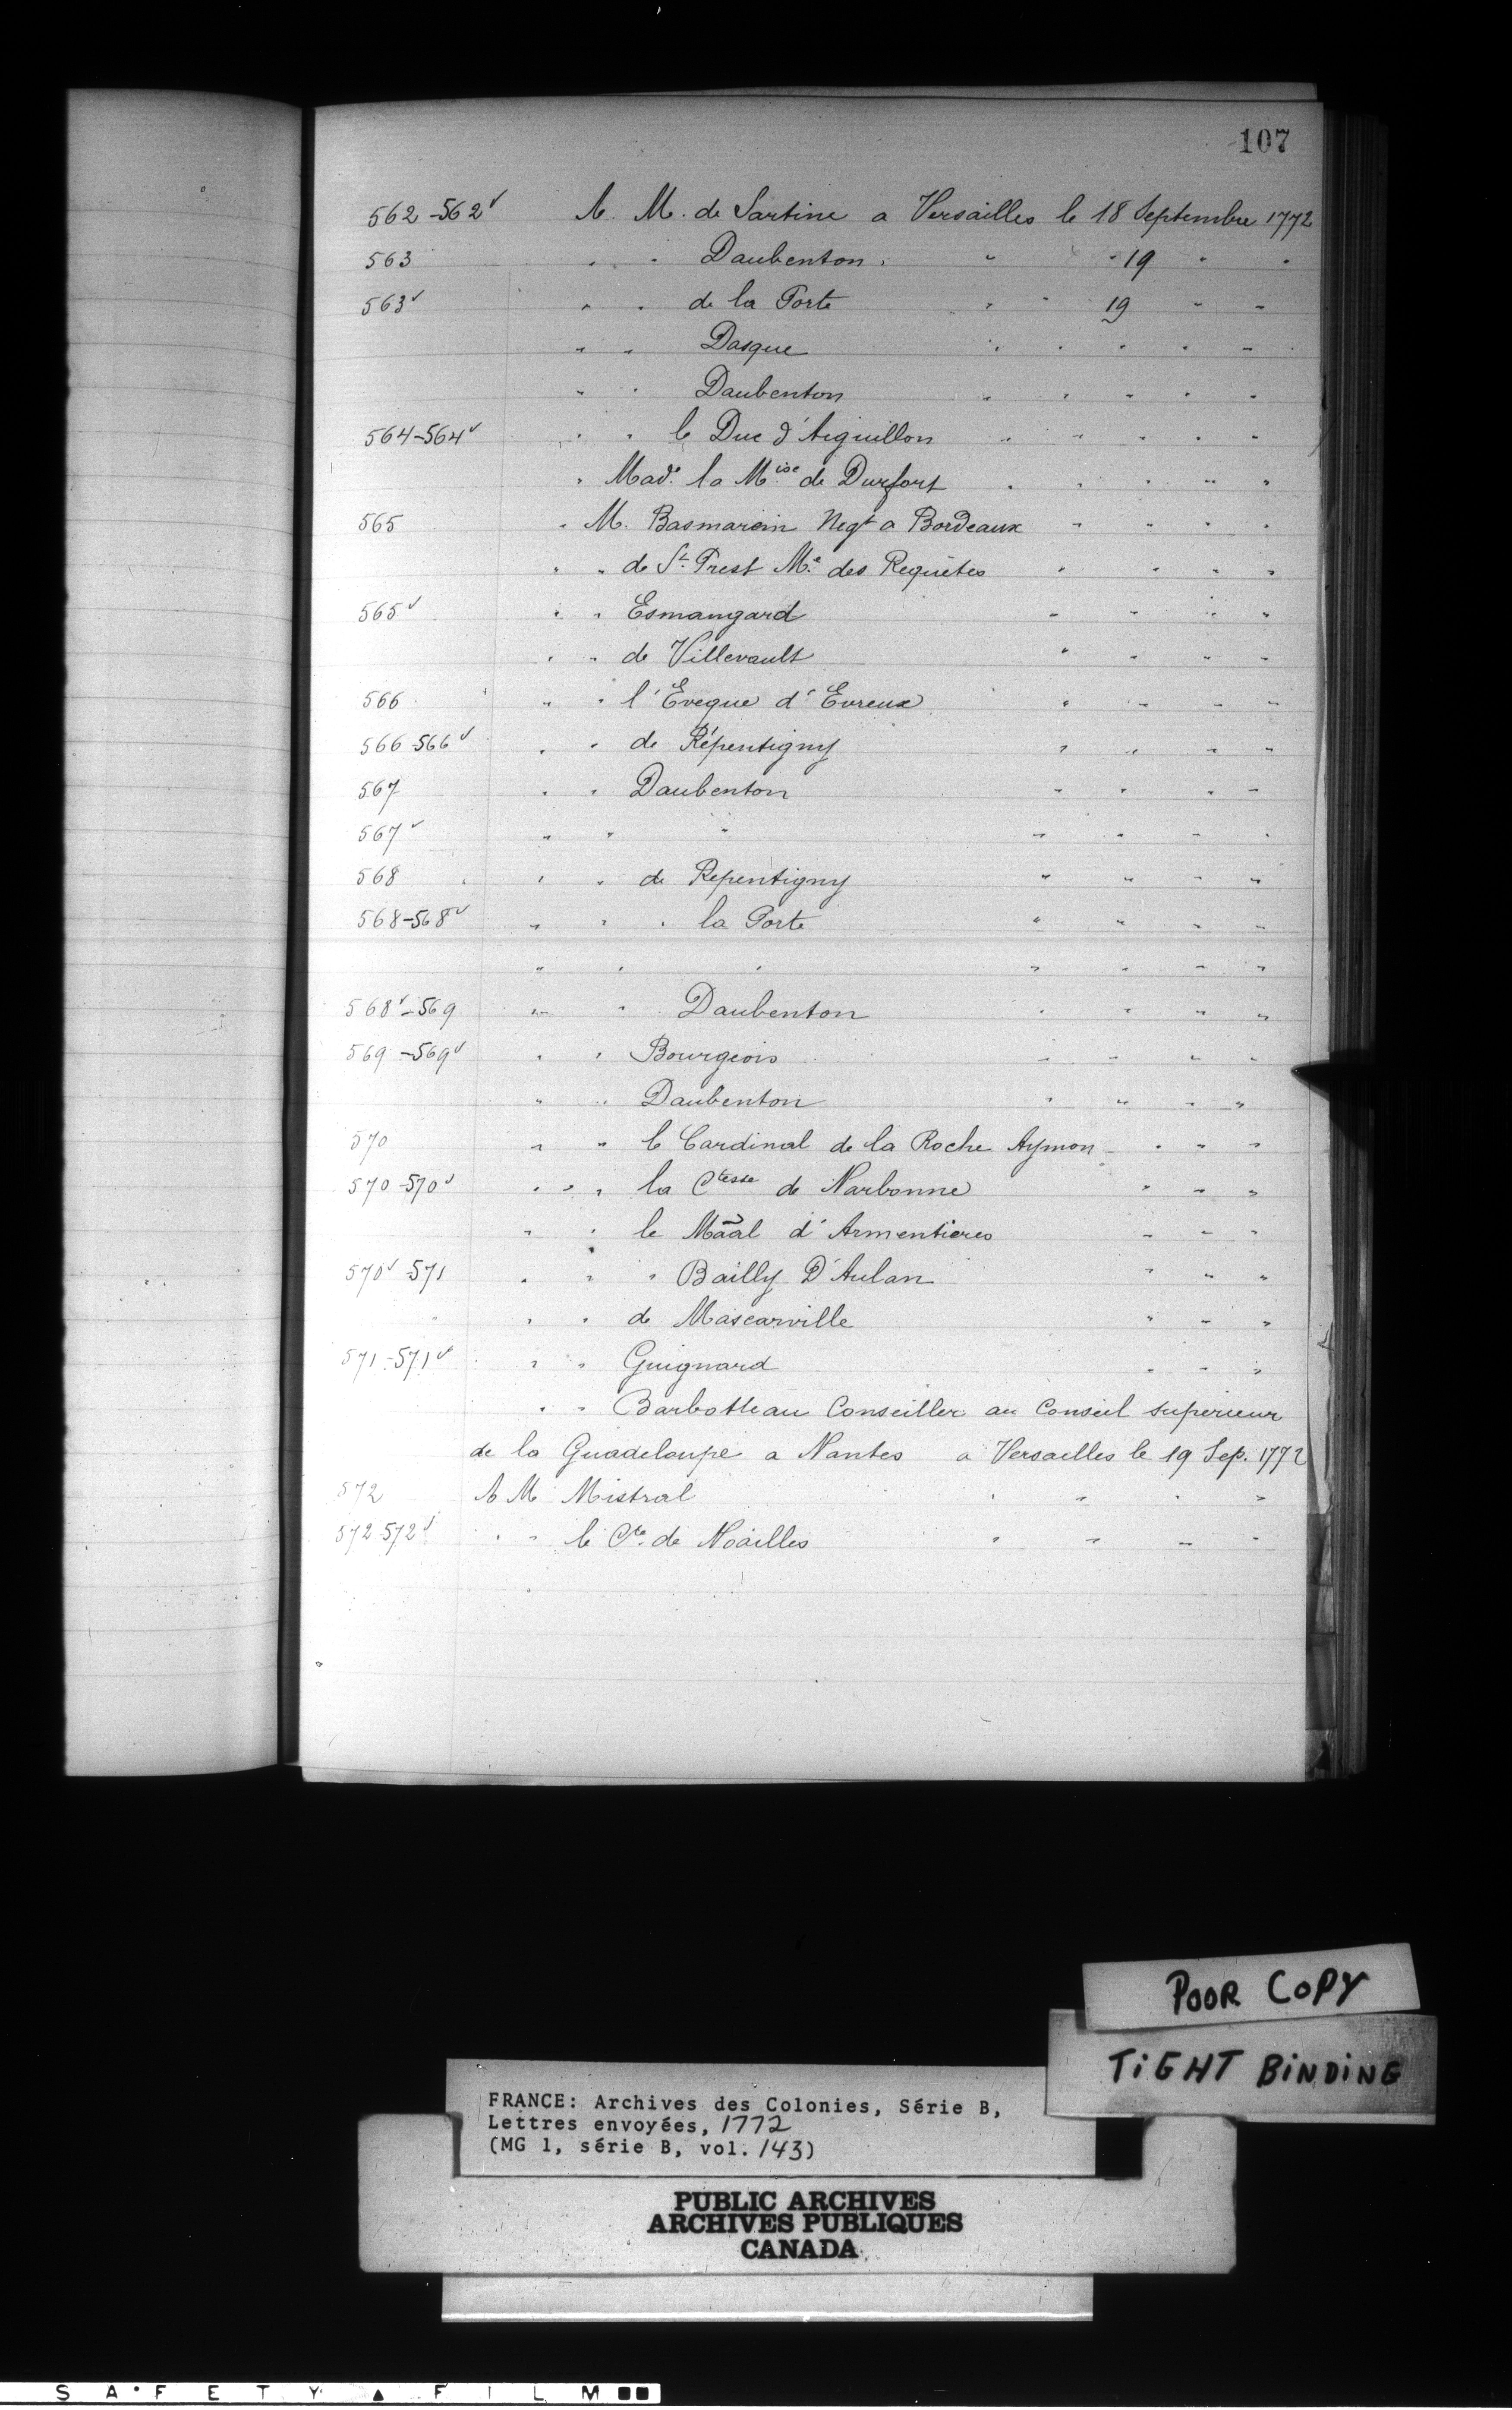 107
562-562v A. M. de Sartine a Versailles le 18 Septembre 1772
563 " " Daubenton " " 19 " "
563v " " de la Porte " " 19 " "
" " Dasque " " " " "
" " Daubenton " " " " "
564-564v " " le Duc d'Aiguillon " " " " "
" Made la Mise de Durfort " " " " "
565 " M. Basmarein Negt a Bordeaux " " " "
" " de St. Prest Me des Requêtes " " " "
565v " " Esmangard " " " "
" " de Villevault " " " "
566 " " l'Eveque d'Evreux " " " "
566-566v " " de Répentigny " " " "
567 " " Daubenton " " " "
567v " " " " " " "
568 " " de Repentigny " " " "
568-568v " " " la Porte " " " "
" " " " " " "
568v-569 " " Daubenton " " " "
569-569v " " Bourgeois " " " "
" " Daubenton " " " "
570 " " le Cardinal de la Roche Aymon " " "
570-570v " " " la Ctesse de Narbonne " " "
" " le Maal d'Armentieres " " "
570v-571 " " " Bailly D'Aulan " " "
" " " de Mascarville " " "
571-571v " " Guignard " " "
" " Barbotteau Conseiller au Conseil superieur
de la Guadeloupe a Nantes a Versailles le 19 Sep. 1772
572 A M Mistral " " " "
572-572v " " le Cte. de Noailles " " " "
POOR COPY
TiGHT BiNDiNG
FRANCE: Archives des Colonies, Série B,
Lettres envoyées, 1772
(MG 1, série B, vol. 143)
PUBLIC ARCHIVES
ARCHIVES PUBLIQUES
CANADA
SAFETY ▲ FILM ■■